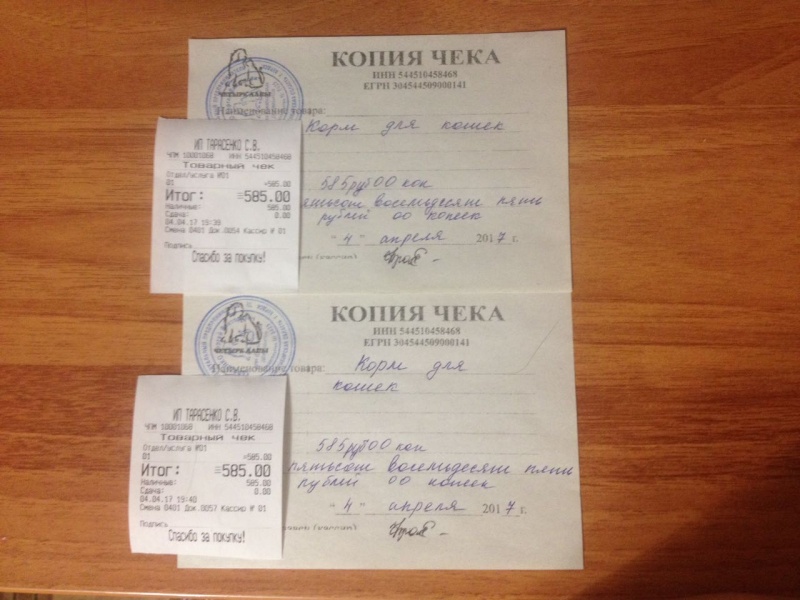 КОПИЯ ЧЕКА
ИНН 544510458468
ЕГРН 304544509000141
ЧЕТЫРЕ ЛАПЫ
Наименование товара:
Корм для кошек
585 руб 00 коп
пятьсот восемьдесят пять
рублей 00 копеек
"4" апреля 2017 г.
ИП ТАРАСЕНКО С.В.
ЧПМ 10001068 ИНН 544510458468
Товарный чек
Отдел/услуга №01
01 =585.00
Итог: =585.00
Наличные: 585.00
Сдача: 0.00
04.04.17 19:39
Смена 0401 Док.0054 Кассир № 01
Подпись
Спасибо за покупку!
КОПИЯ ЧЕКА
ИНН 544510458468
ЕГРН 304544509000141
ЧЕТЫРЕ ЛАПЫ
Наименование товара:
Корм для
кошек
585 руб 00 коп
пятьсот восемьдесят пять
рублей 00 копеек
"4" апреля 2017 г.
ИП ТАРАСЕНКО С.В.
ЧПМ 10001068 ИНН 544510458468
Товарный чек
Отдел/услуга №01
01 =585.00
Итог: =585.00
Наличные: 585.00
Сдача: 0.00
04.04.17 19:40
Смена 0401 Док.0057 Кассир № 01
Подпись
Спасибо за покупку!